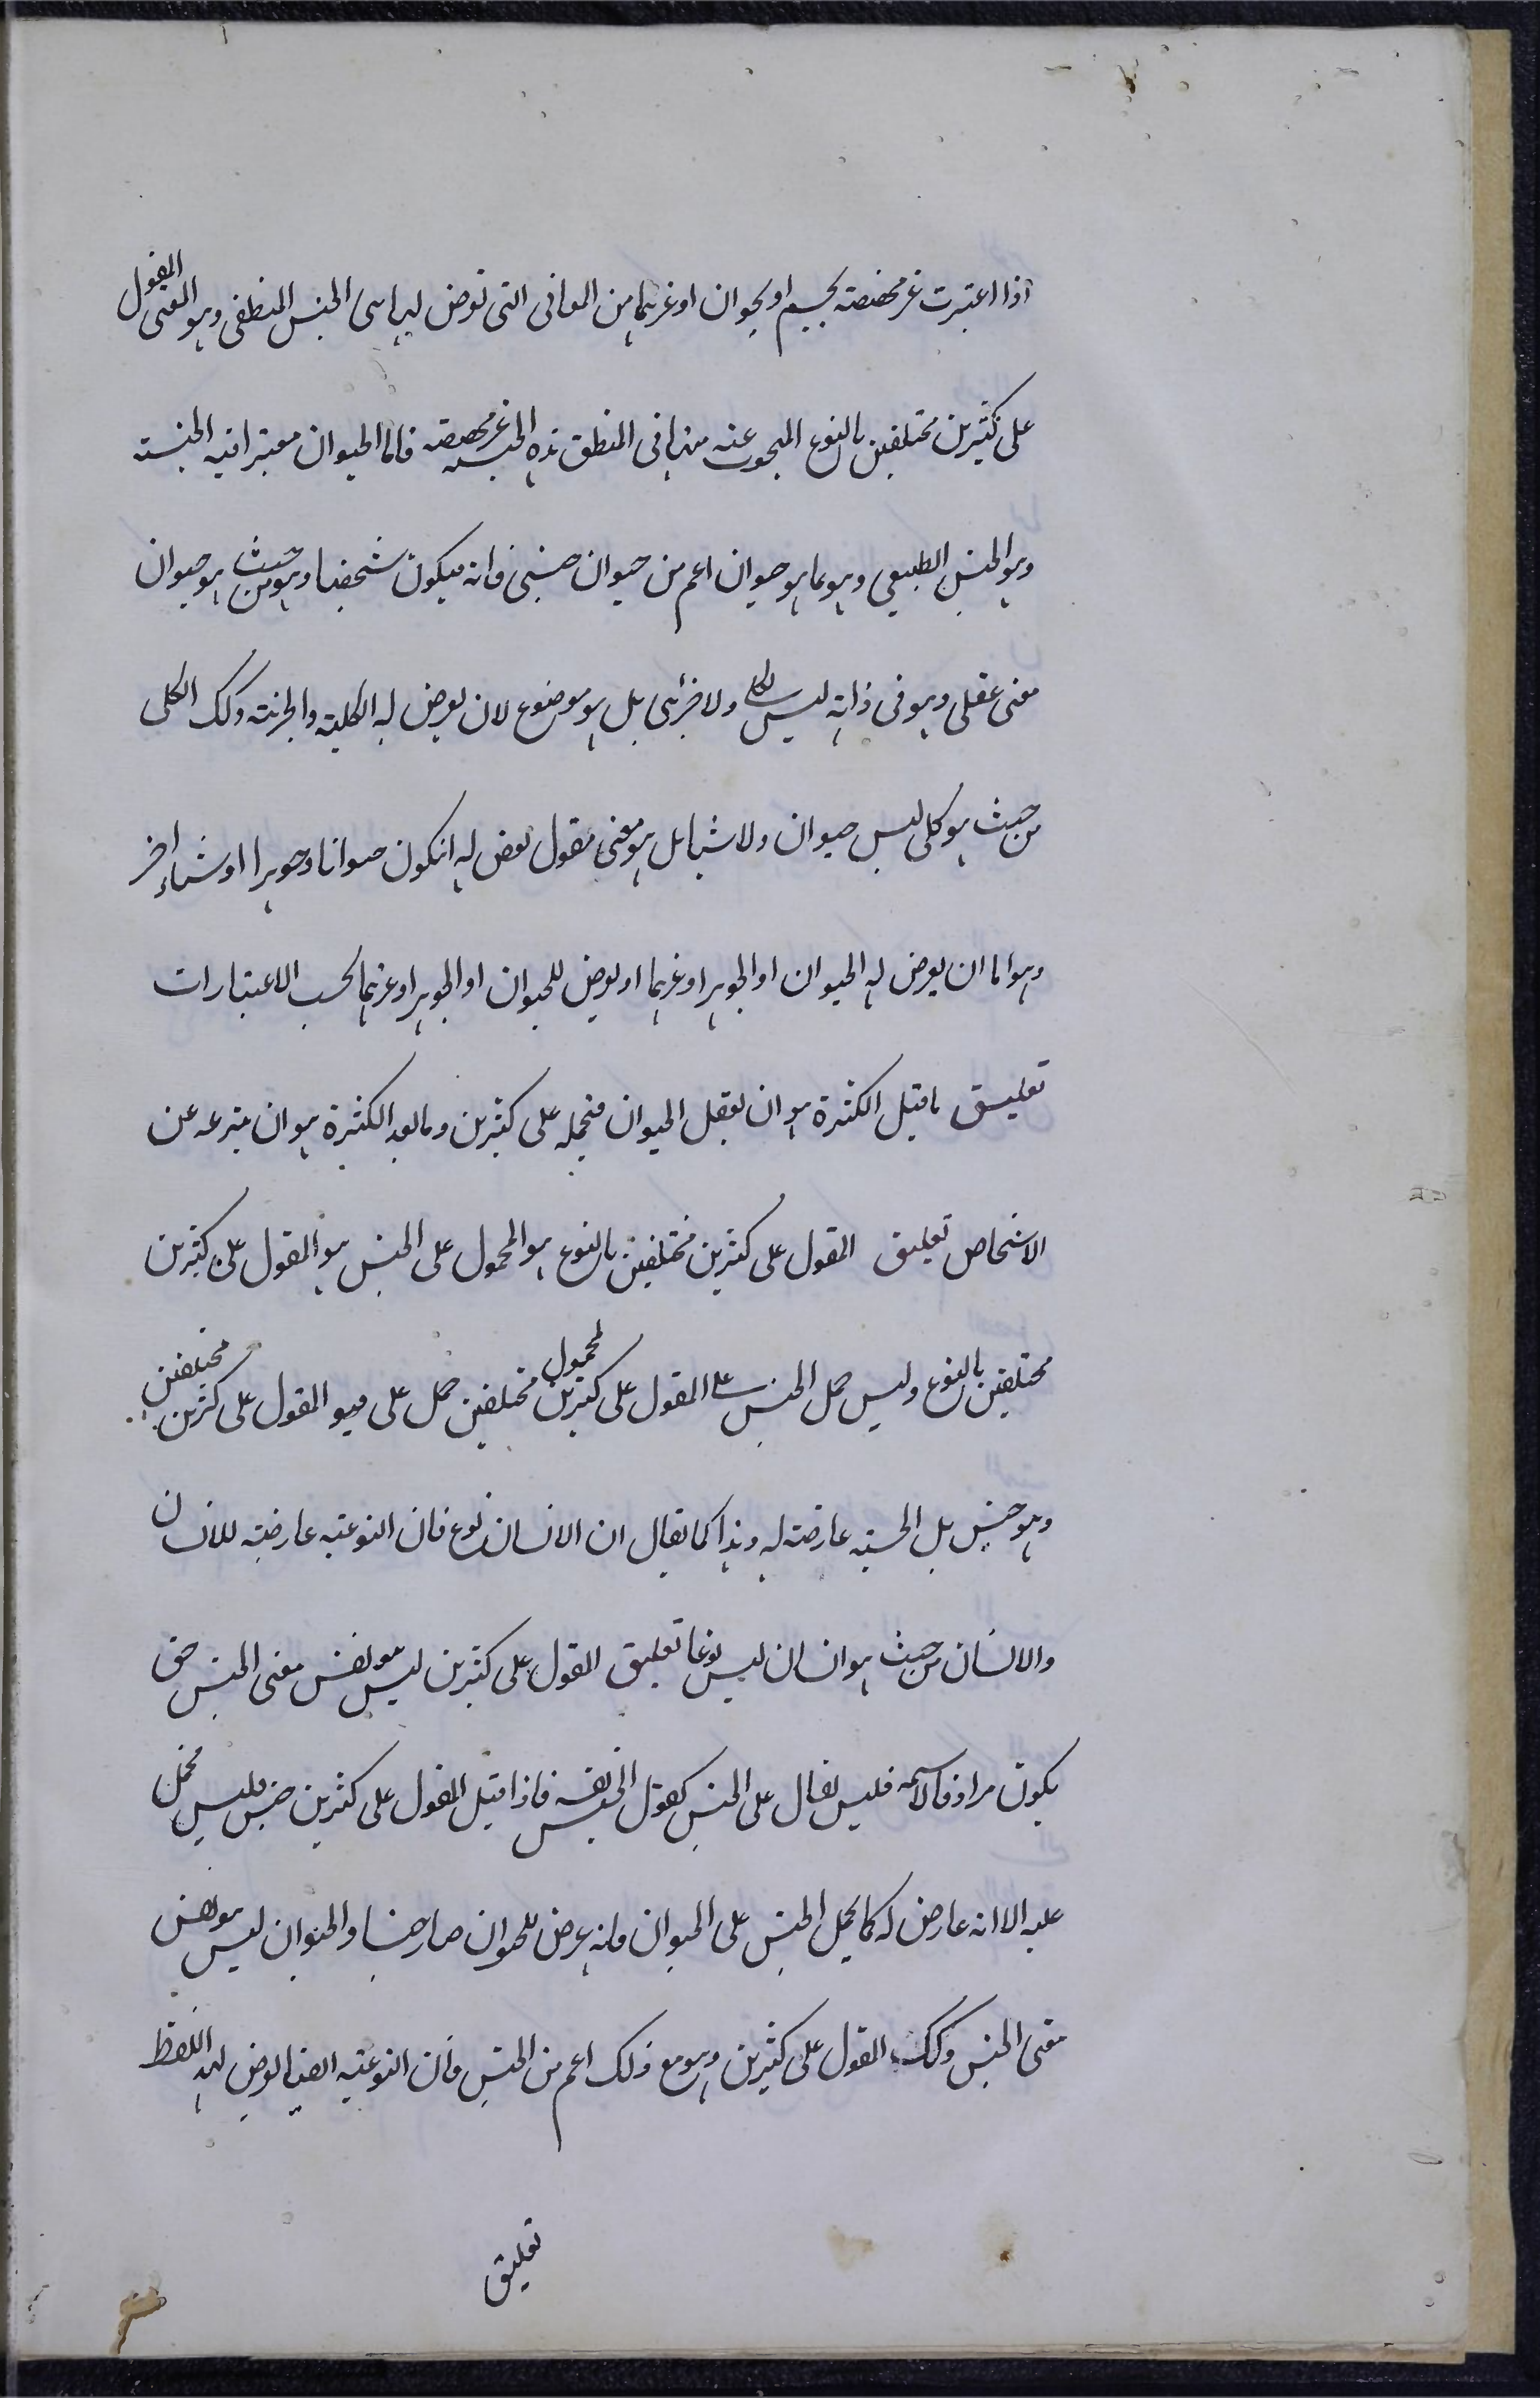 اذا اعتبرت غير مخصصته بجسم او بحيوان او غيرهما من المعانى التى تعرض لها هى الجنس المنطقى وهو المعنى المقول
على كثيرين مختلفين بالنوع المبحوث عنه منها فى المنطق هذه الجنسية غير مخصصته فاما الحيوان معتبرا فيه الجنسية
وهو الجنس الطبيعى وهو بما هو حيوان اعم من حيوان جنسى فانه فيكون شخصيا وهو من حيث هو حيوان
معنى عقلى وهو فى ذاته ليس بكلى ولا جزئى بل هو موضوع لان يعرض له الكلية والجزئية وكك الكلى
من حيث هو كلى ليس حيوان ولا شيا بل هو معنى مقول يعرض له انيكون حيوانا وجوهرا او شياء اخر
وهو اما ان يعرض له الحيوان او الجوهر او غيرهما او يعرض للحيوان او الجوهر او غيرهما بحسب الاعتبارات
تعليق ما قبل الكثرة هو ان يعقل الحيوان فتحمله على كثيرين وما بعد الكثرة هو ان ينتزعه عن
الاشخاص تعليق المقول على كثيرين مختلفين بالنوع هو المحمول على الجنس هو المقول على كثيرين
مختلفين بالنوع وليس حمل الجنس على المقول على كثيرين مختلفين كحمول حمل على فهو المقول على كثيرين مختلفين
وهو جنس بل الجنسية عارضة له وهذا كما يقال ان الانسان نوع فان النوعية عارضة للانسان
والانسان من حيث هو انسان ليس نوعا تعليق المقول على كثيرين ليس هو نفس معنى الجنس حتى
يكون مرادفا لاسمه فليس يقال على الجنس كقول الجنس فاذا قيل المقول على كثيرين جنس فليس يحمل
عليه الا انه عارض له كما يحمل الجنس على الحيوان فانه عرض للحيوان صار جنسا والحيوان ليس هو نفس
معنى الجنس وكك المقول على كثيرين وهو مع ذلك اعم من الجنس فان النوعية ايضا تعرض لهذا اللفظ
تعليق